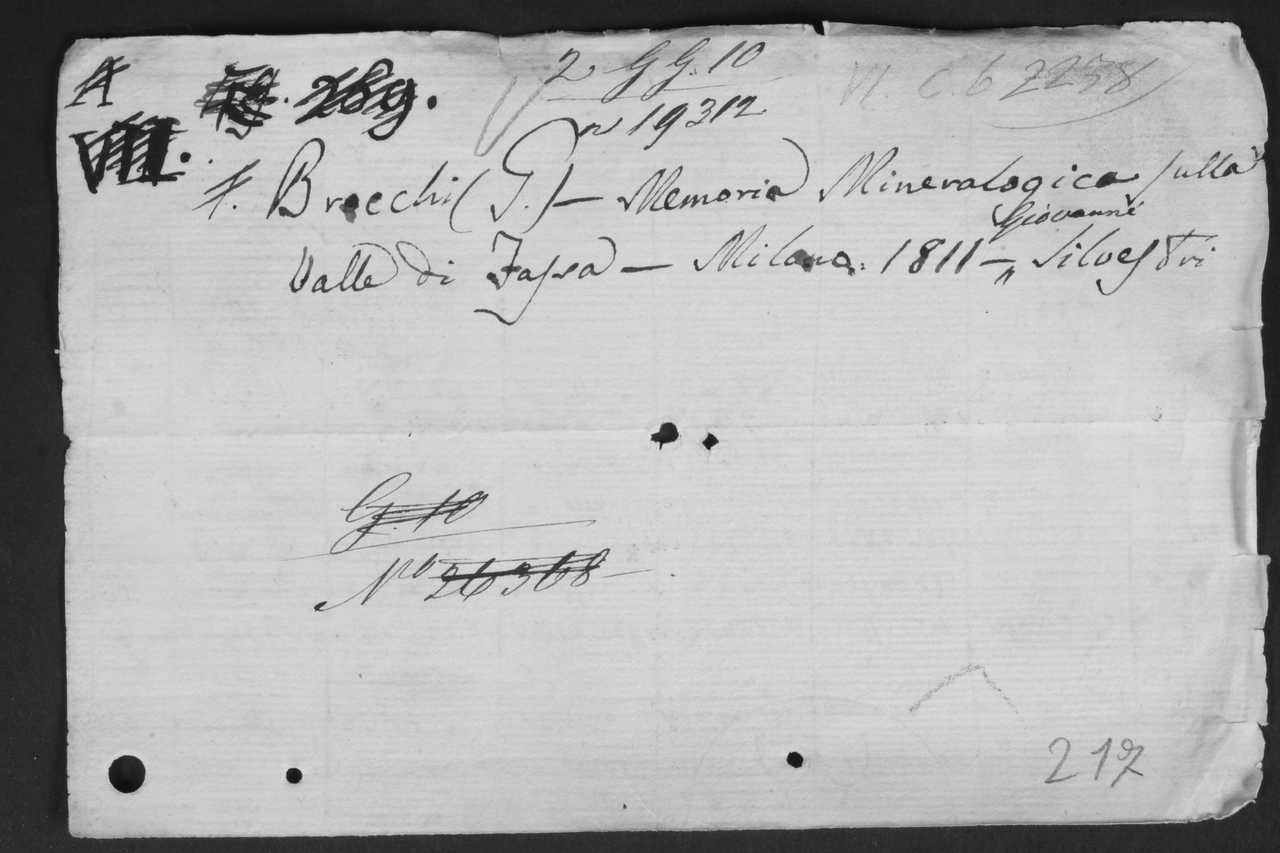 A
VII.
289.
2 GG. 10
n 19312
VI. C. 6 2258
Brocchi (G.) — Memoria Mineralogica sulla
Valle di Fassa — Milano. 1811 — Giovanni Silvestri
G. 10
No 26368
217